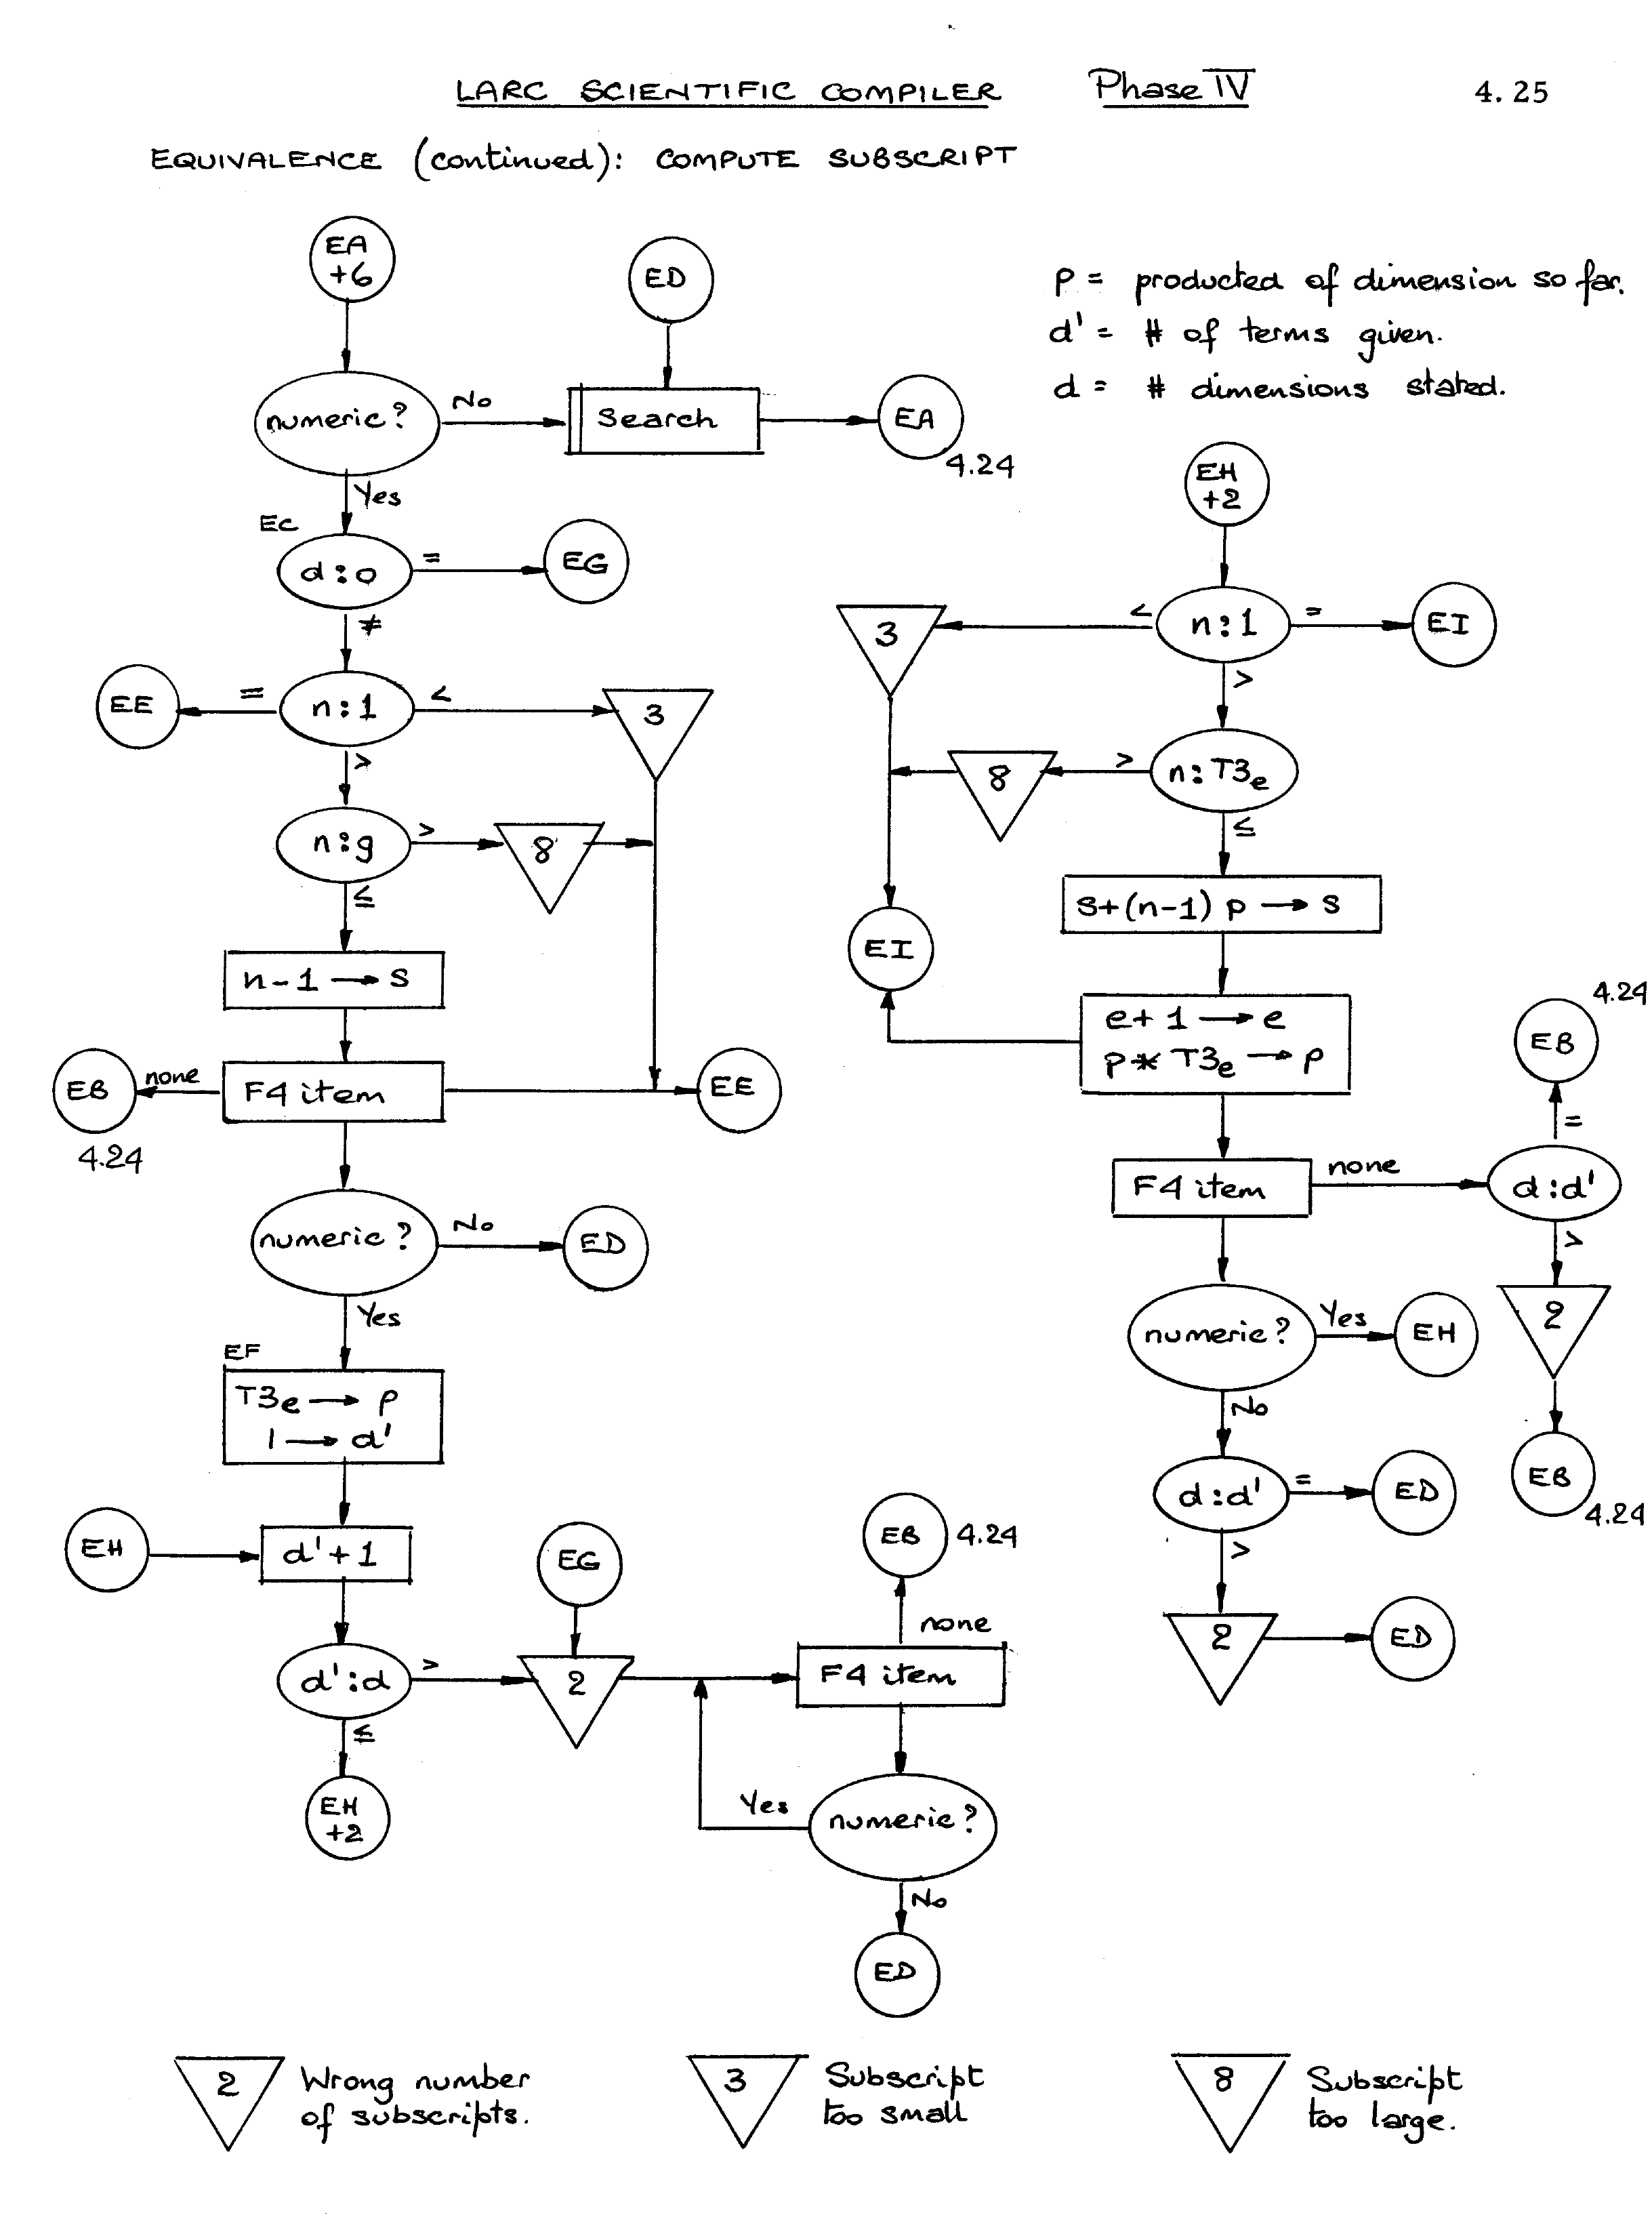 LARC SCIENTIFIC COMPILER Phase IV 4.25
EQUIVALENCE (continued): COMPUTE SUBSCRIPT
EA
+6
ED
p = producted of dimension so far.
d' = # of terms given.
d = # dimensions stated.
numeric?
No
Search
EA
4.24
Yes
EC
d:o
=
EG
≠
EE
=
n:1
<
3
>
n:g
>
8
≤
n-1 → S
EB
4.24
none
F4 item
EE
numeric?
No
ED
Yes
EF
T3e → p
1 → d'
EH
d'+1
d':d
>
EG
2
≤
EH
+2
EB 4.24
none
F4 item
Yes
numeric?
No
ED
EH
+2
3
<
n:1
=
EI
>
8
>
n:T3e
≤
S+(n-1) p → S
EI
e+1 → e
p* T3e → p
4.24
EB
=
F4 item
none
d:d'
>
2
EB
4.24
numeric?
Yes
EH
No
d:d'
=
ED
>
2
ED
2 Wrong number
of subscripts.
3 Subscript
too small
8 Subscript
too large.